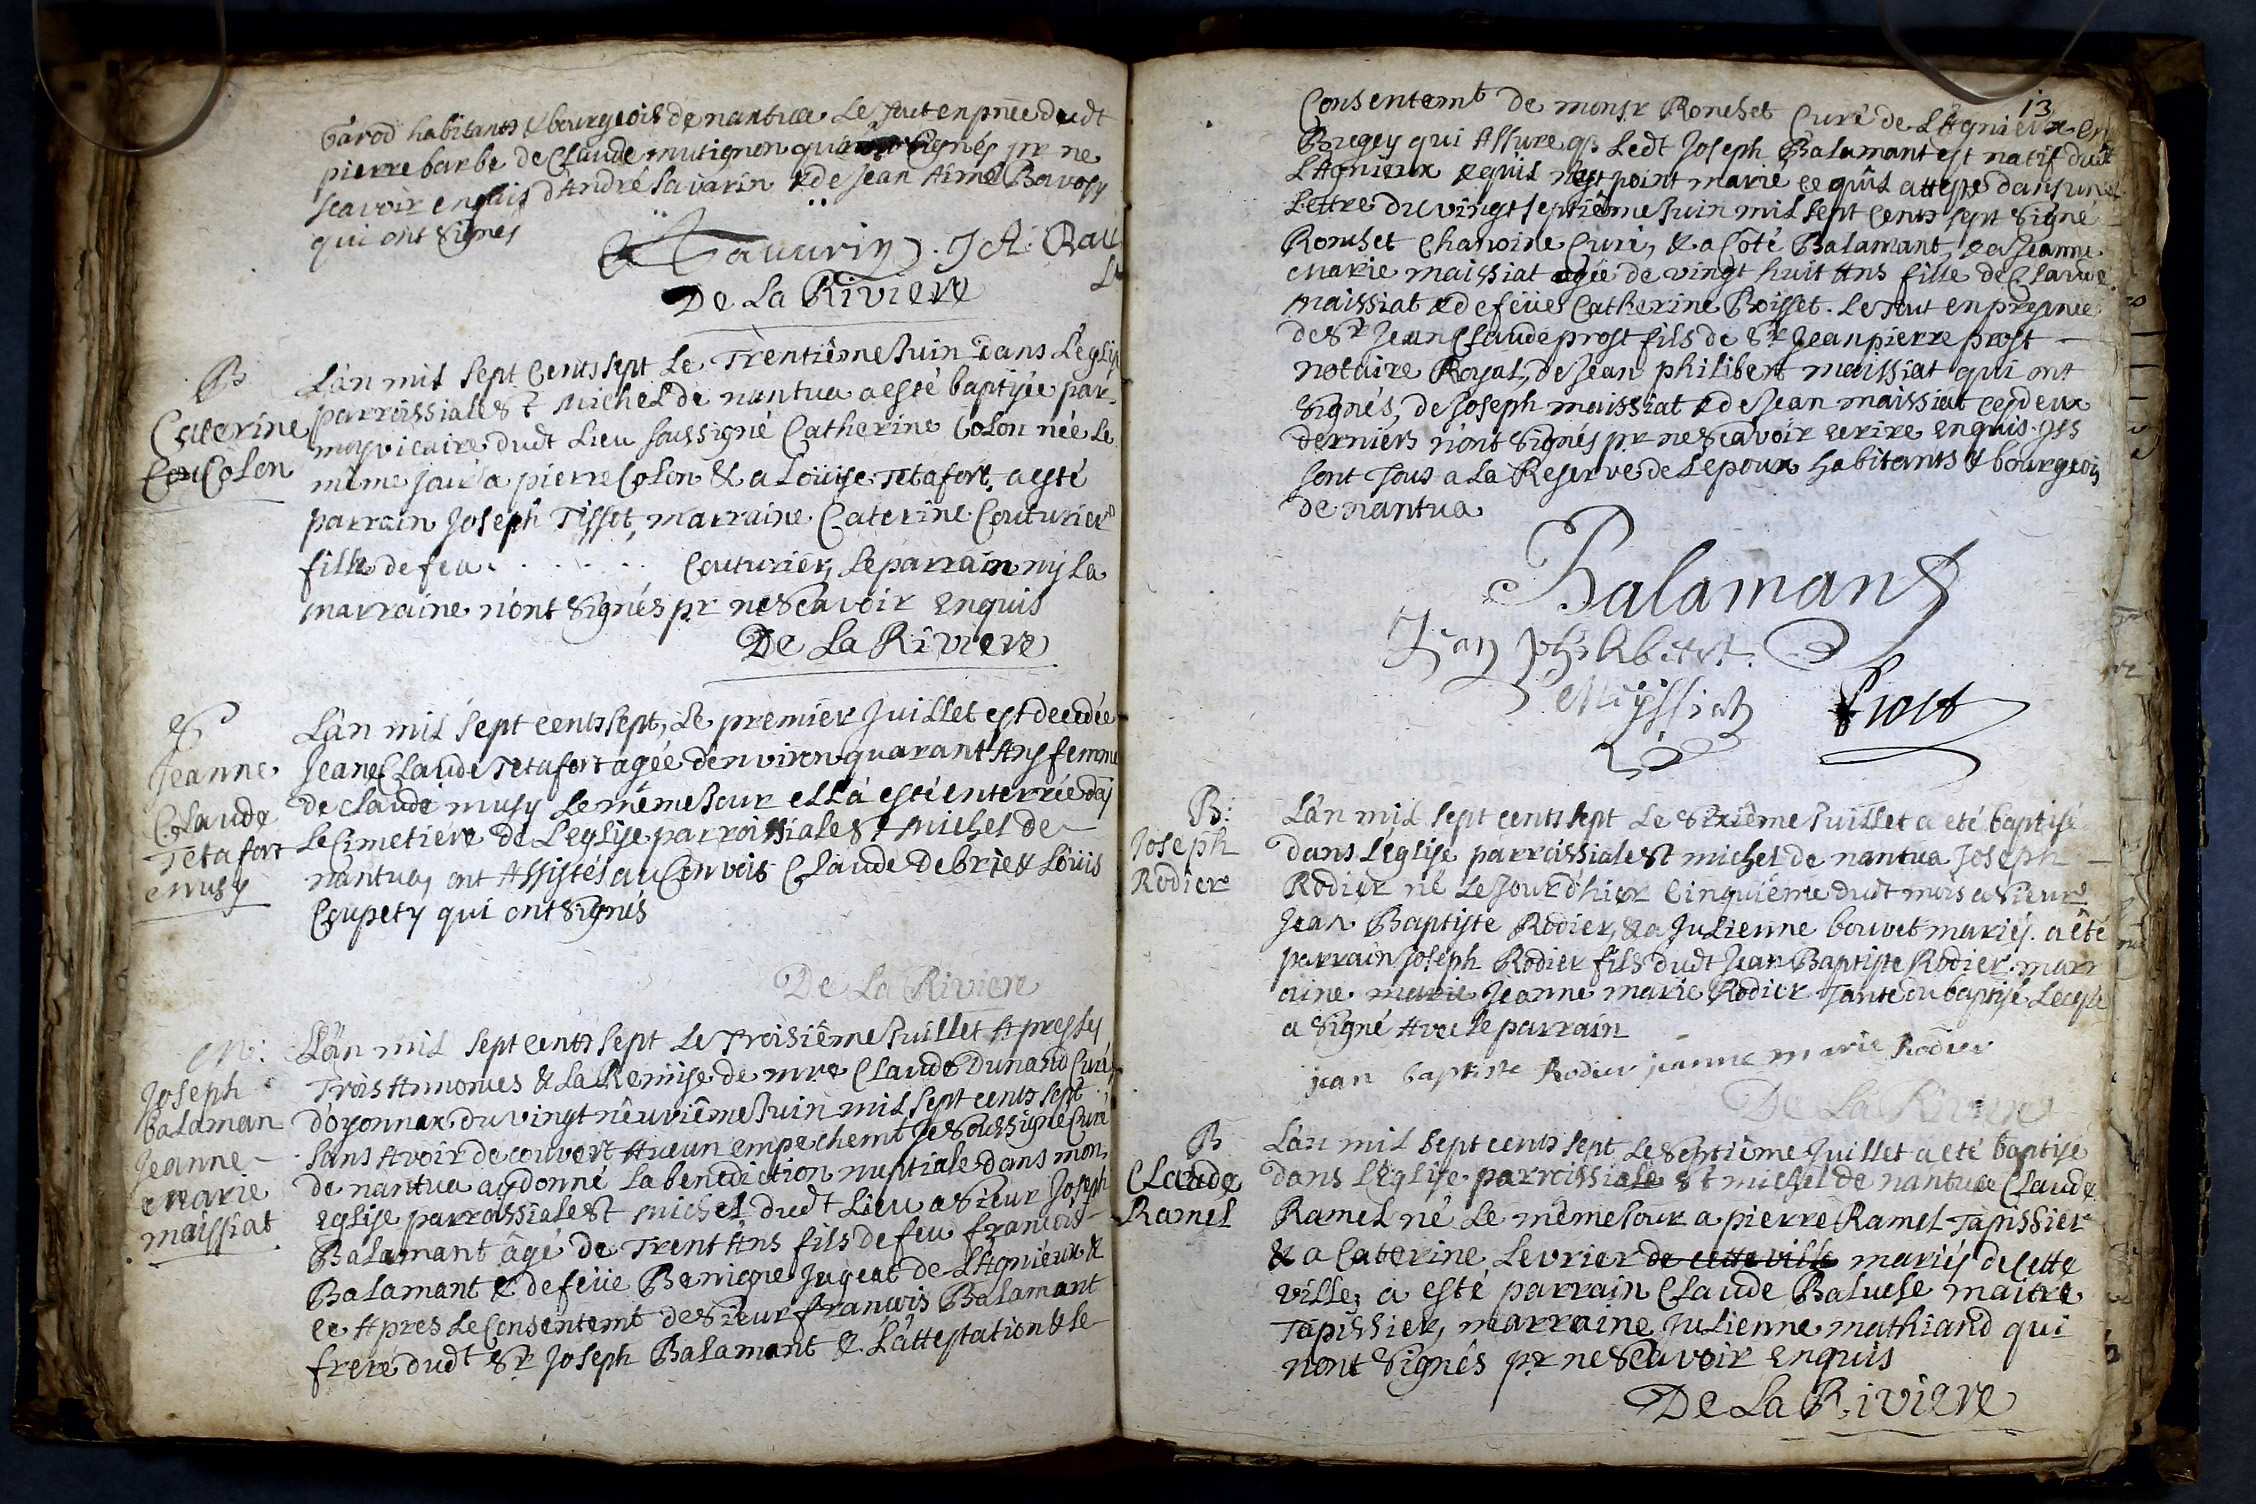 Garod habitants & bourgeois de nantua Le Tout en pnce dudt
pierre barbe de Claude mutignon qui Signés pr ne
scavoir enquis d'André Savarin & de Jean Aimé
qui ont Signés
Sauvrin J A
De La Riviere
B
Caterine
Colon
L'an mil sept cents sept Le Trentiême Juin dans L'eglise
parroissiale St Michel de nantua a esté baptisée par
moy vicaire dudt Lieu soussigné Catherine Colon née Le
même jour a pierre Colon & a Loüise Tetafort, a esté
parrain Joseph Tisset, marraine Caterine Couturier
fille de feu . . . . . . . Couturier, Le parrain ny La
marraine n'ont Signés pr ne Scavoir enquis
De La Riviere
S
Jeanne
Claude
Tetafort
musy
L'an mil sept cents sept, Le premier Juillet est decedée
Jeane Claude Tetafort agée d'environ quarant Ans femme
de claude musy Le même Jour ell'a esté enterrée dās
Le Cimetiere de L'eglise parroissiale St Michel de
nantua, ont Assistés au Convois Claude debrie & Loüis
Coupety qui ont Signés
De La Riviere
M:
Joseph
balaman
Jeanne
Marie
maissiat
L'an mil sept cents sept Le Troisiême Juillet Apres Les
Trois Annonces & La Remise de mre Claude Dunand Curé
d'oyonnax du vingt neuviême Juin mil sept cents sept
sans Avoir decouvert Aucun empechemt Je Soussigné Curé
de nantua ay donné La benediction nuptiale dans mon
eglise parroissiale St Michel dudt Lieu a Sieur Joseph
Balamant âgé de Trent Ans fils de feu francois
Balamant & de feüe Benigne Jugeat de L'Agnieux &
ce Apres Le Consentemt de Sieur françois Balamant
frere dudt Sr Joseph Balamant & L'attestation & Le
13
Consentemt de monsr Ronchet Curé de L'Agnieux En
Bugey qui Assure qe Ledt Joseph Balamant est natif dudt
L'Agnieux & qu'il n'est point marié ce qu'il atteste dans une
Lettre du vingt septiême Juin mil sept cents sept Signé
Ronchet Chanoine Curé, & a Côté Balamant, & a Jeanne
Marie maissiat agée de vingt huit Ans fille de Claude
Maissiat & de feüe Catherine Boisset. Le Tout en presence
de Sr Jean Claude prost fils de Sr Jean pierre prost
notaire Royal, de Jean philibert maissiat qui ont
Signés, de Joseph maissiat & de Jean maissiat ces deux
derniers n'ont Signés pr ne Scavoir ecrire enquis. Ils
sont Tous a La Reserve de L'epoux habitants & bourgeois
de nantua
Balamant
Jean philibert
Mayssiat Prost
B:
Joseph
Rodier
L'an mil sept cents sept Le Sixiême Juillet a eté baptisé
dans L'eglise parroissiale St michel de nantua Joseph
Rodier né Le Jour d'hier Cinquiême dudt mois a Sieur
Jean Baptiste Rodier, & a Julienne bouvet mariés. a êté
parrain Joseph Rodier fils dudt Jean Baptiste Rodier. marr
aine marie Jeanne marie Rodier Tante du baptisé
a Signé Avec le parrain
jean baptiste Rodier jeanne marie Rodier
De La Riviere
B
Claude
Ramel
L'an mil sept cents sept Le Septiême Juillet a eté baptisé
dans L'eglise parroissiale St michel de nantua Claude
Ramel né Le même Jour a pierre Ramel Tapissier
& a Caterine Levrier de cette ville mariés de cette
ville, a esté parrain Claude Baluese maitre
Tapissier, marraine Julienne mathiand qui
n'ont Signés pr ne Scavoir enquis
De La Riviere